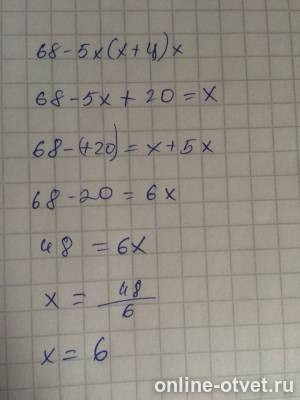 68-5x(x+4)x
68-5x+20=x
68-(+20)=x+5x
68-20=6x
48=6x
x=48/6
x=6
online-otvet.ru